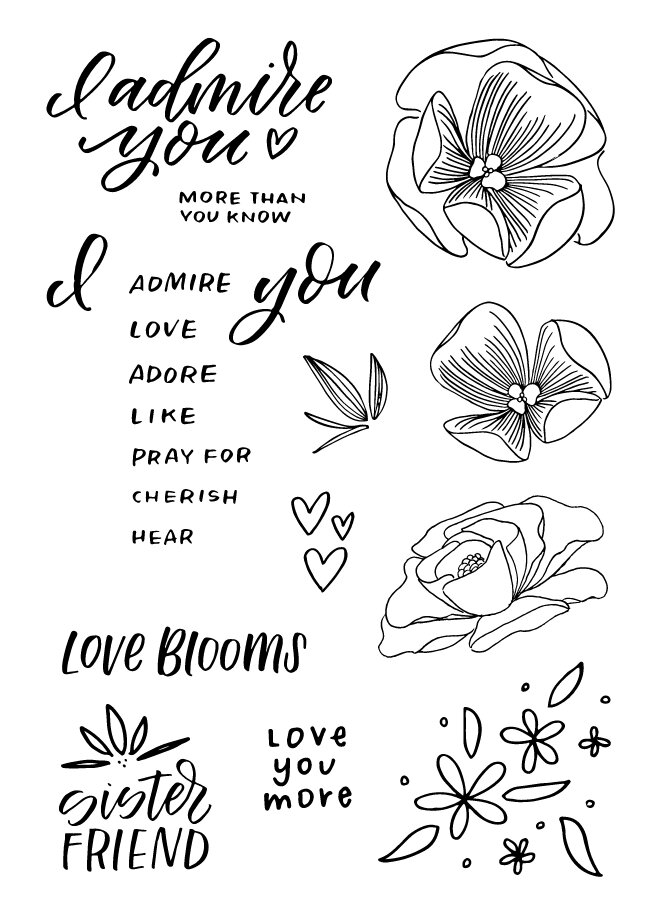 I admire
you
MORE THAN
YOU KNOW
I ADMIRE you
LOVE
ADORE
LIKE
PRAY FOR
CHERISH
HEAR
LOVE BLOOMS
sister
FRIEND
LOVe
you
more